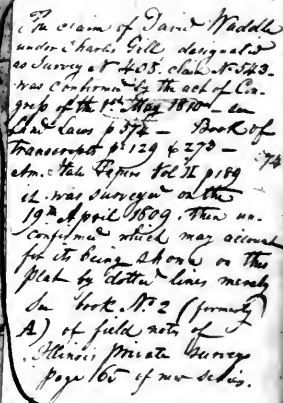 The claim of David Waddle
under Charles Gill designated
as Survey No 405. claim No 543-
was confirmed by the act of Con-
gress of the 1st May 1810 - see
Land Laws p 574 - Book of
transcripts p. 129 & 273 -
74
Am. State Papers Vol II p 189
it was surveyed on the
19th April 1809. then un-
confirmed which may account
for its being shown on this
plat by dotted lines merely
See book No. 2 (formerly
A) of field notes of
Illinois private surveys
page 165 of new series.